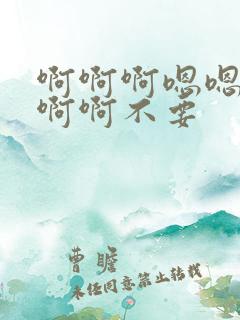 啊啊啊嗯嗯
啊啊不要
曹瞻
未经同意禁止转载